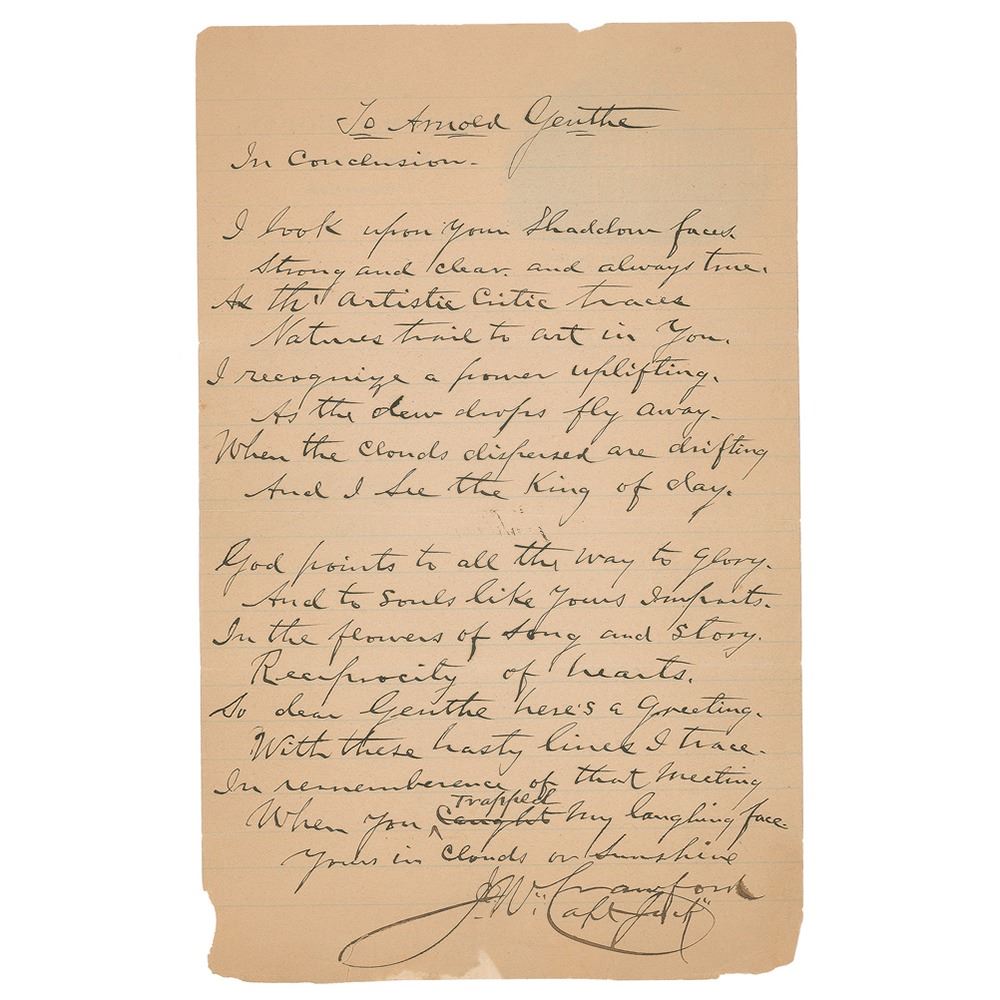 To Arnold Genthe
In Conclusion.
I look upon your Shaddow faces.
Strong and clear. and always true.
As th' Artistic Critic traces
Natures trail to art in You.
I recognize a power uplifting.
As the dew drops fly away.
When the Clouds dispersed are drifting
And I See the King of day.
God points to all the way to glory.
And to Souls like Yours Imparts.
In the flowers of Song and Story.
Reciprocity of hearts.
So dear Genthe here's a Greeting.
With these hasty lines I trace.
In rememberence of that Meeting
Trapped
When you Caught My laughing face.
Yours in Clouds or Sunshine
J. W. Crawford
"Capt Jack"